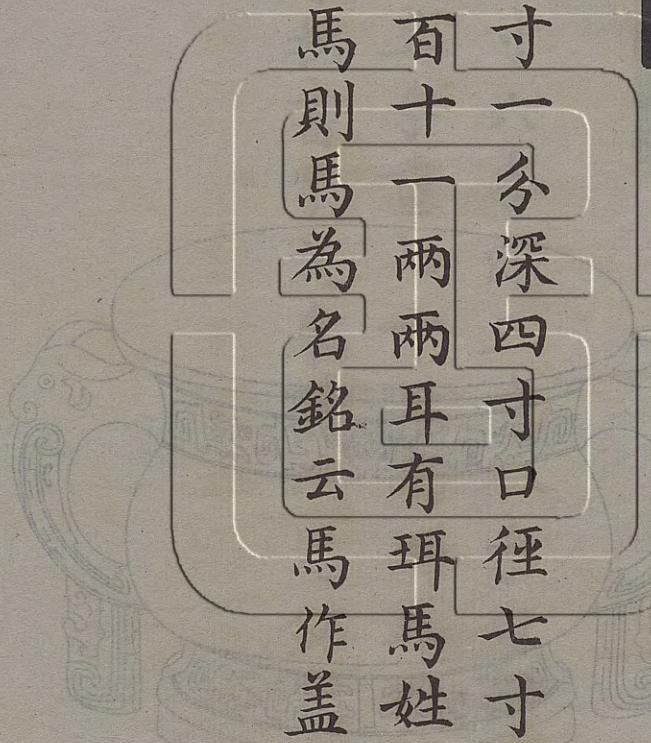 寸一分深四寸口徑七寸
百十一兩兩耳有珥馬姓
馬則馬為名銘云馬作盖